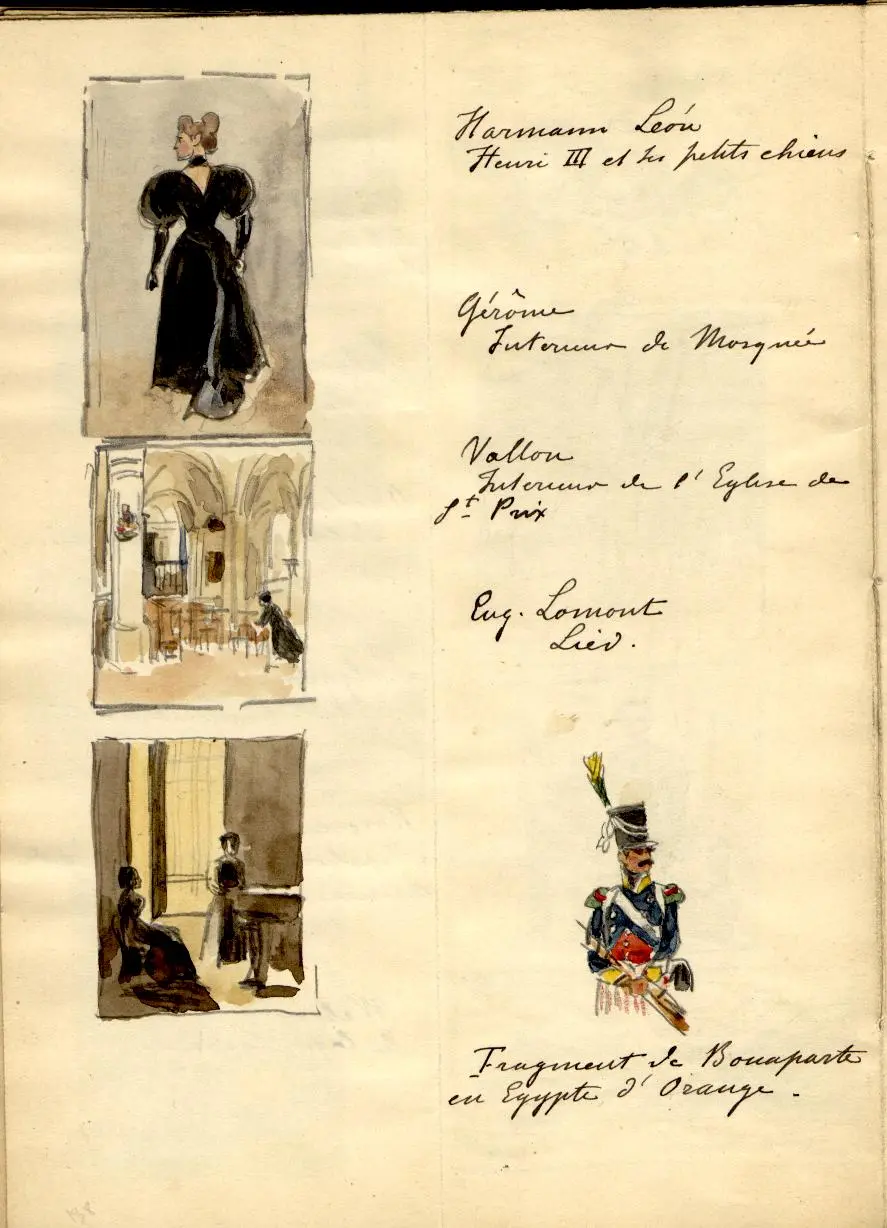 Harmann Léon
Henri III et ses petits chiens
Gérôme
Interieur de Mosquée
Vallon
Interieur de l'Eglise de
St Prix
Eug. Lomont
Lied.
Fragment de Bonaparte
en Egypte d'Orange.
138